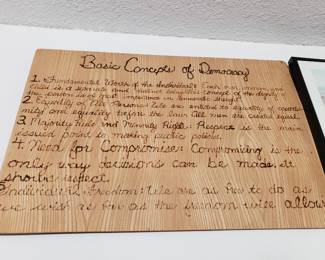 Basic Concepts of Democracy
1. Fundamental Worth of the Individual: Each man, woman, and
child is a separate and distinct concept of the dignity of
the person is of most importance in democratic thought
2. Equality of All Persons: We are entitled to equality of opportu-
nity and equality before the law. All men are created equal
3. Majority Rule and Minority Rights: Respect is the main
issued point in making public policies.
4. Need for Compromise: Compromising is the
only way decisions can be made. It
should reflect
Individual Freedom: We are as free to do as
we wish as far as the freedom wise allows